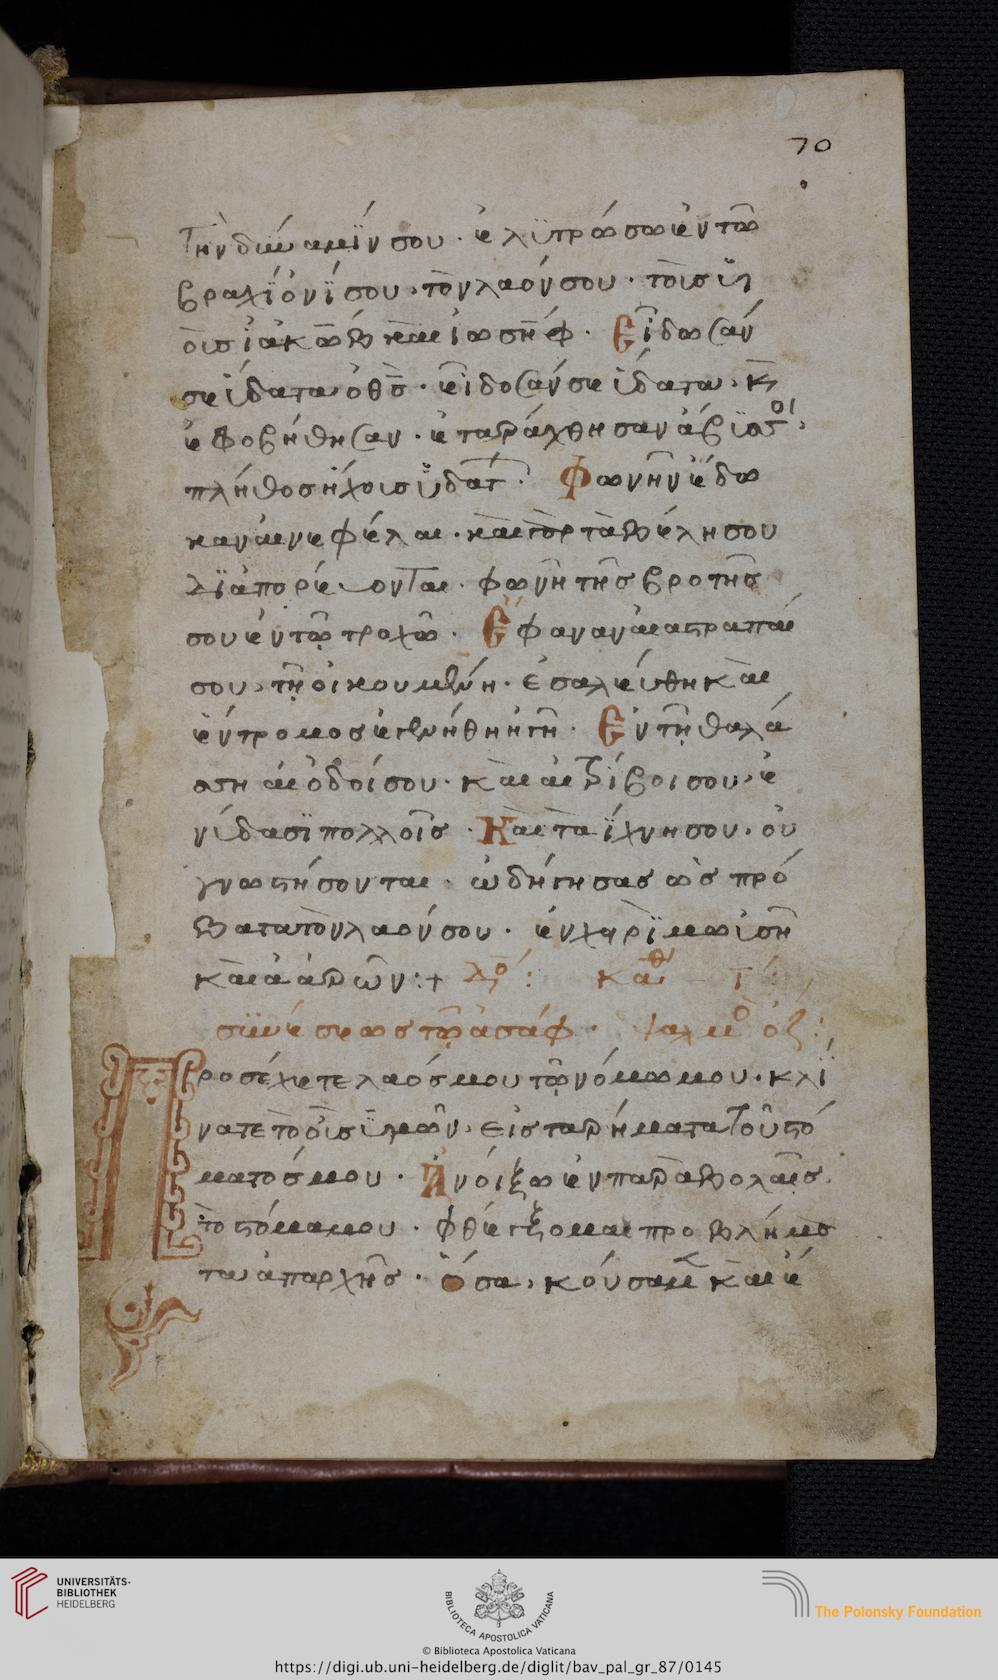 70
τὴν δύναμίν σου· ἐλυτρώσω ἐν τῷ
βραχϊόνϊ σου· τὸν λαόν σου· τοὺσ ϋἱ
οὺσ ἰακὼβ καὶ ἰωσήφ· Εἶδωσάν
σε ὕδατα ὁ θσ· εἴδοσάν σε ὕδατα· κ
ἐφοβήθησαν· ἐταράχθησαν ἄβϋσοι·
πλῆθοσ ἤχουσ ὑδατ· Φωνὴν ἔδω
καν αἱ νεφέλαι· καὶ γὰρ τὰ βέλη σου
δϊαπορέυονται· φωνὴ τῆσ βροντῆσ
σου ἐν τῷ τροχῷ· Ἔφαναν αἱ ἀστραπαί
σου· τῇ οἰκουμένῃ· ἐσαλεύθη καὶ
ἔντρομοσ ἐγενήθη ἡ γῆ· Ἐν τῇ θαλά
σση αἱ ὁδοί σου· καὶ αἱ τρίβοι σου· ἐ
ν ὕδασϊ πολλοῖσ· Καὶ τὰ ἴχνη σου· οὐ
γνωστήσονται· ὡδήγησασ ὡσ πρό
βατα τὸν λαόν σου· ἐν χειρϊ μωϊσῆ
καὶ ἀαρών:+ κάθ
συνέσεωσ τῷ ἀσάφ· ψαλμο οζ:
Προσέχετε λαόσ μου τῷ νόμω μου· κλϊ
νατε τὸ οὖσ ϋμῶν· εἰσ τὰ ρήματα τοῦ στό
ματόσ μου· Ἀνοίξω ἐν παραβολαῖσ
τὸ στόμα μου· φθέγξομαι προβλήμα
τα ἀπαρχῆσ· Ὅσα ἠκούσαμε καὶ ἔ
UNIVERSITÄTS-
BIBLIOTHEK
HEIDELBERG
BIBLIOTECA APOSTOLICA VATICANA
The Polonsky Foundation
© Biblioteca Apostolica Vaticana
https://digi.ub.uni-heidelberg.de/diglit/bav_pal_gr_87/0145